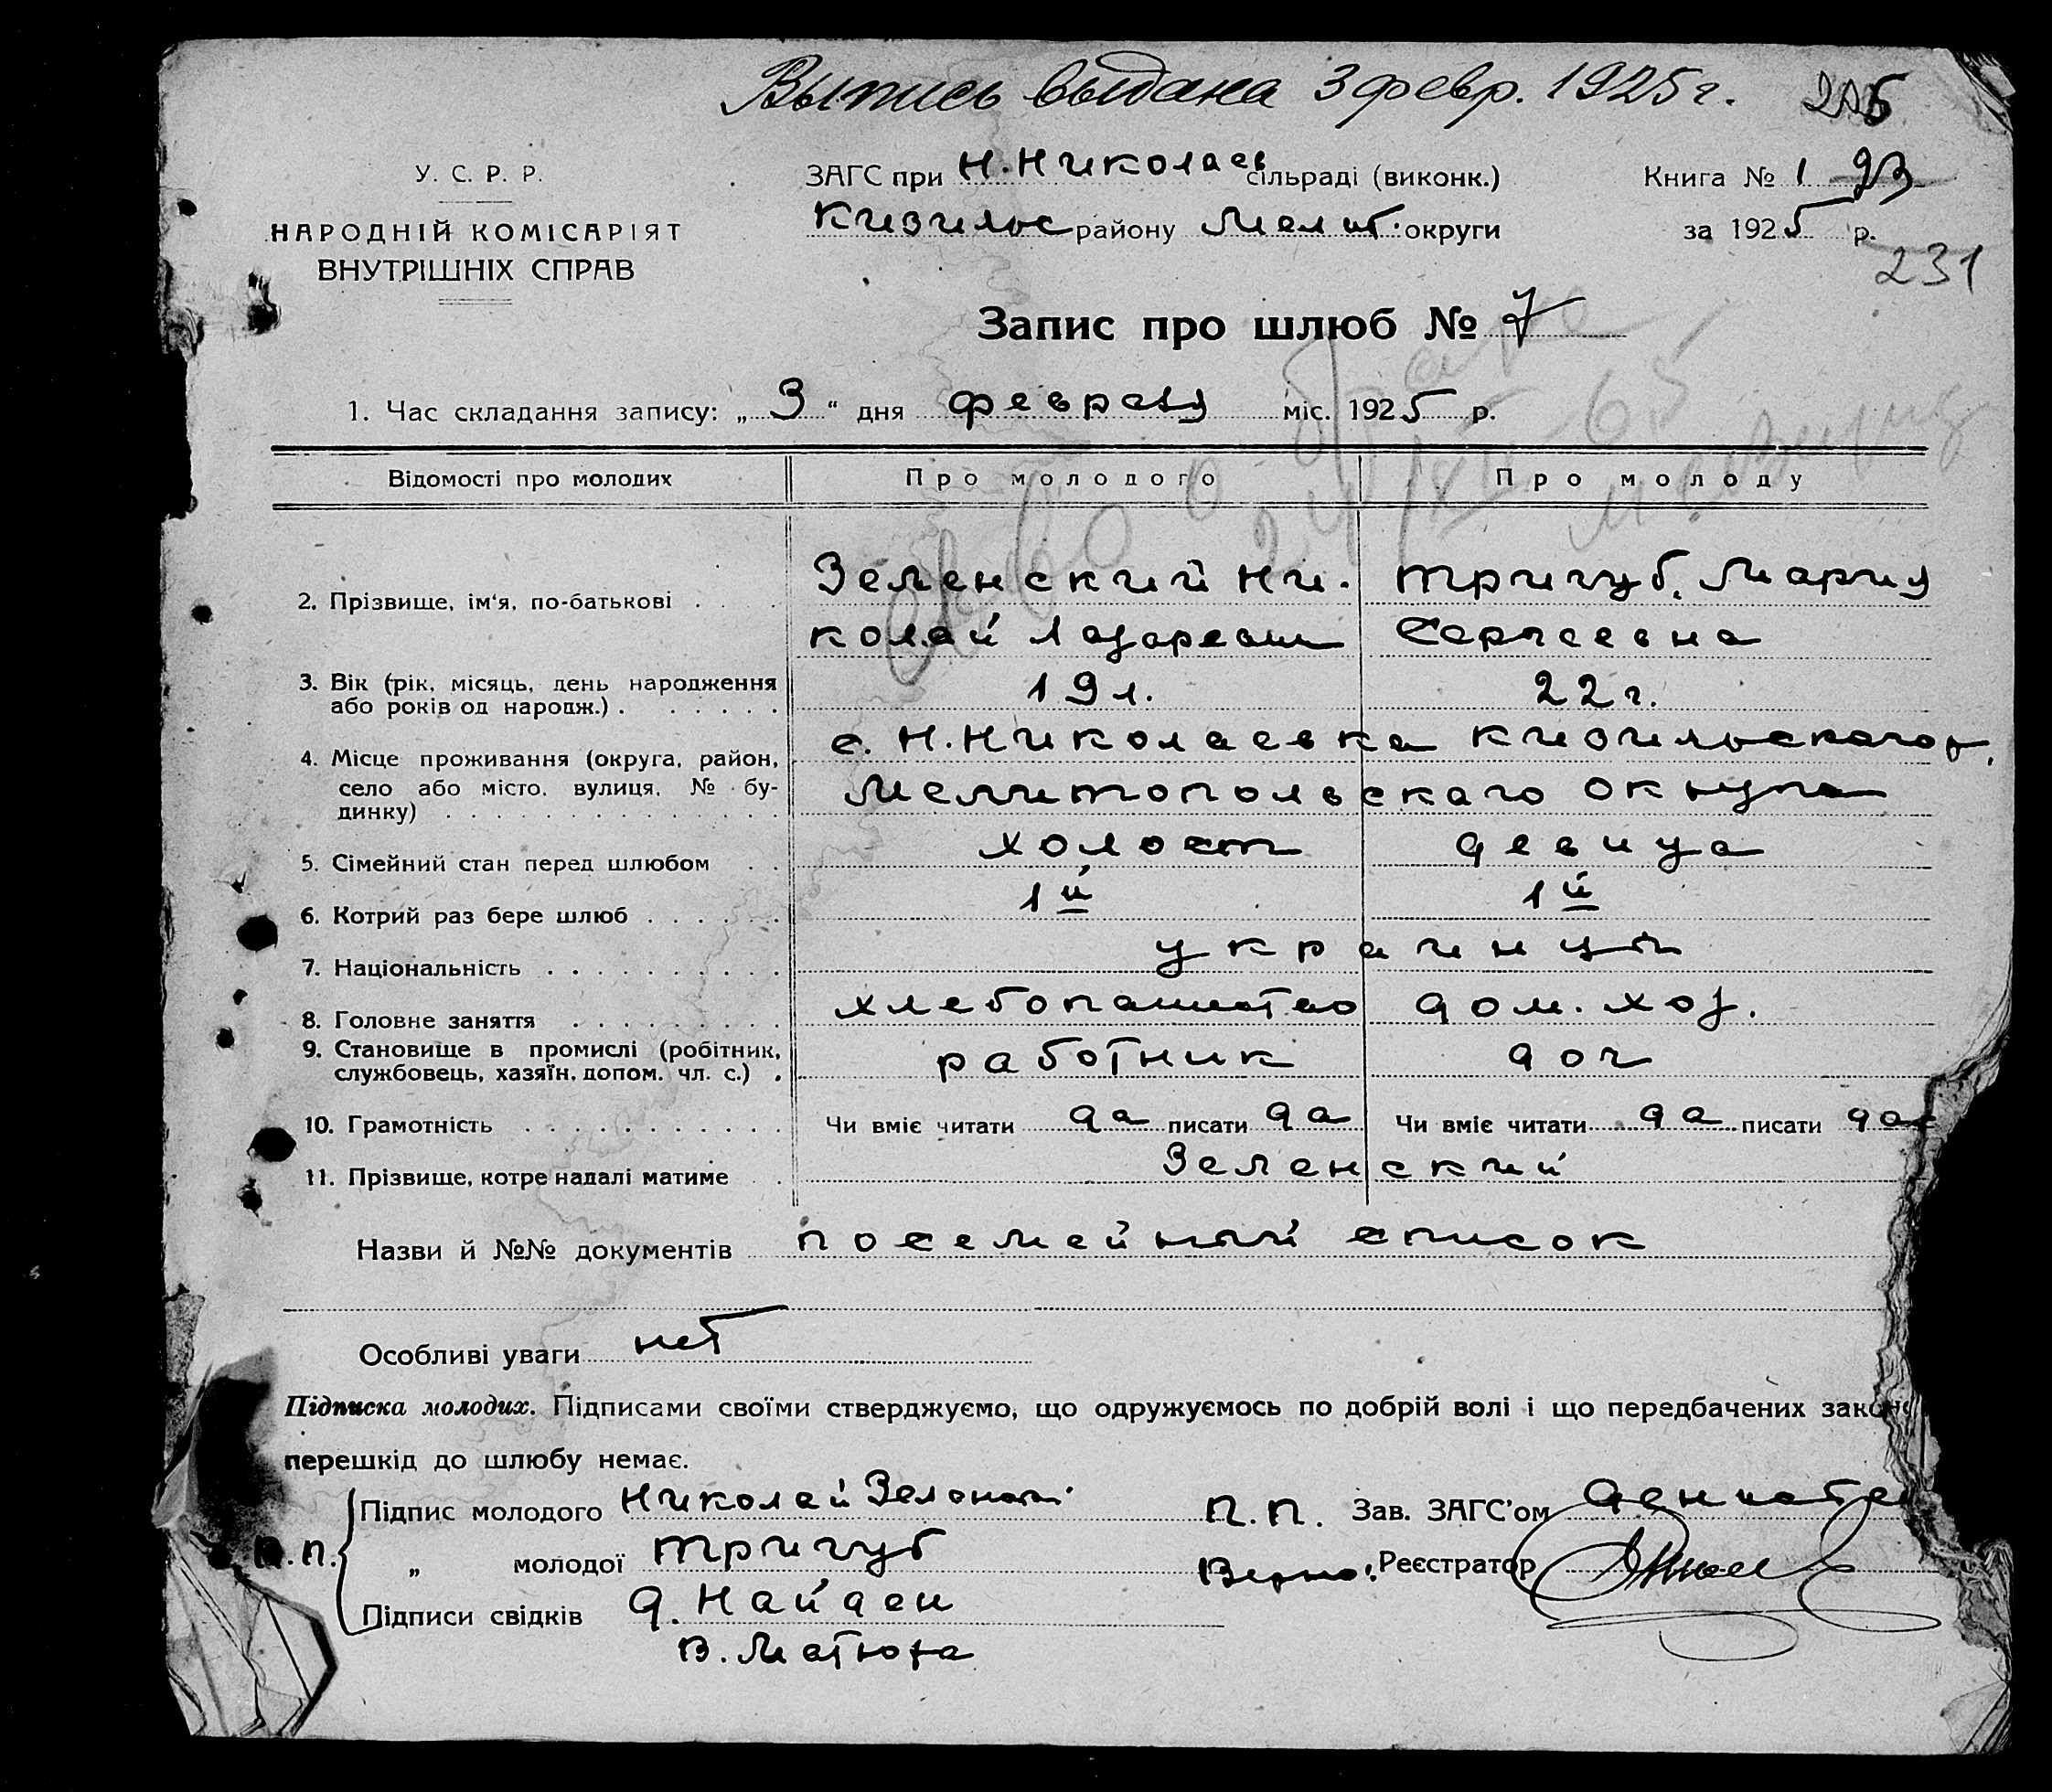 Выпись выдана 3 февр. 1925 г.
У. С. Р. Р.
НАРОДНІЙ КОМІСАРІЯТ
ВНУТРІШНІХ СПРАВ
ЗАГС при Н. Николаев сільраді (виконк.)
Кизильс району Мелит. округи
Книга № 1 93
за 1925 р.
231
Запис про шлюб № 7
1. Час складання запису: „ 3 “ дня февраля міс. 1925 р.
Відомості про молодих Про молодого Про молоду
2. Прізвище, ім'я, по-батькові . . . Зеленский Ни- Тригуб, Мария
колай Лазаревич Сергеевна
3. Вік (рік, місяць, день народження
або років од народж.) . . . . . . 19 л. 22 г.
4. Місце проживання (округа, район,
село або місто, вулиця, № бу-
динку) . . . . . . . . . . . . . . .
с. Н. Николаевка Кизильскаго р.
Мелитопольскаго округа
5. Сімейний стан перед шлюбом . . холост девица
6. Котрий раз бере шлюб . . . . . . 1й 1й
7. Національність . . . . . . . . . . украинцы
8. Головне заняття . . . . . . . . . хлебопашество дом. хоз.
9. Становище в промислі (робітник,
службовець, хазяїн, допом. чл. с.) . работник доч
10. Грамотність . . . . . . . . . . . Чи вміє читати да писати да Чи вміє читати да писати да
11. Прізвище, котре надалі матиме . . Зеленский
Назви й №№ документів посемейный список
Особливі уваги нет
Підписка молодих. Підписами своїми стверджуємо, що одружуємось по добрій волі і що передбачених закон
перешкід до шлюбу немає.
Підпис молодого Николай Зеленский П.П. Зав. ЗАГС'ом
П.П. „ молодої Тригуб Верно: Реєстратор
Підписи свідків Д. Найден
В. Матюха